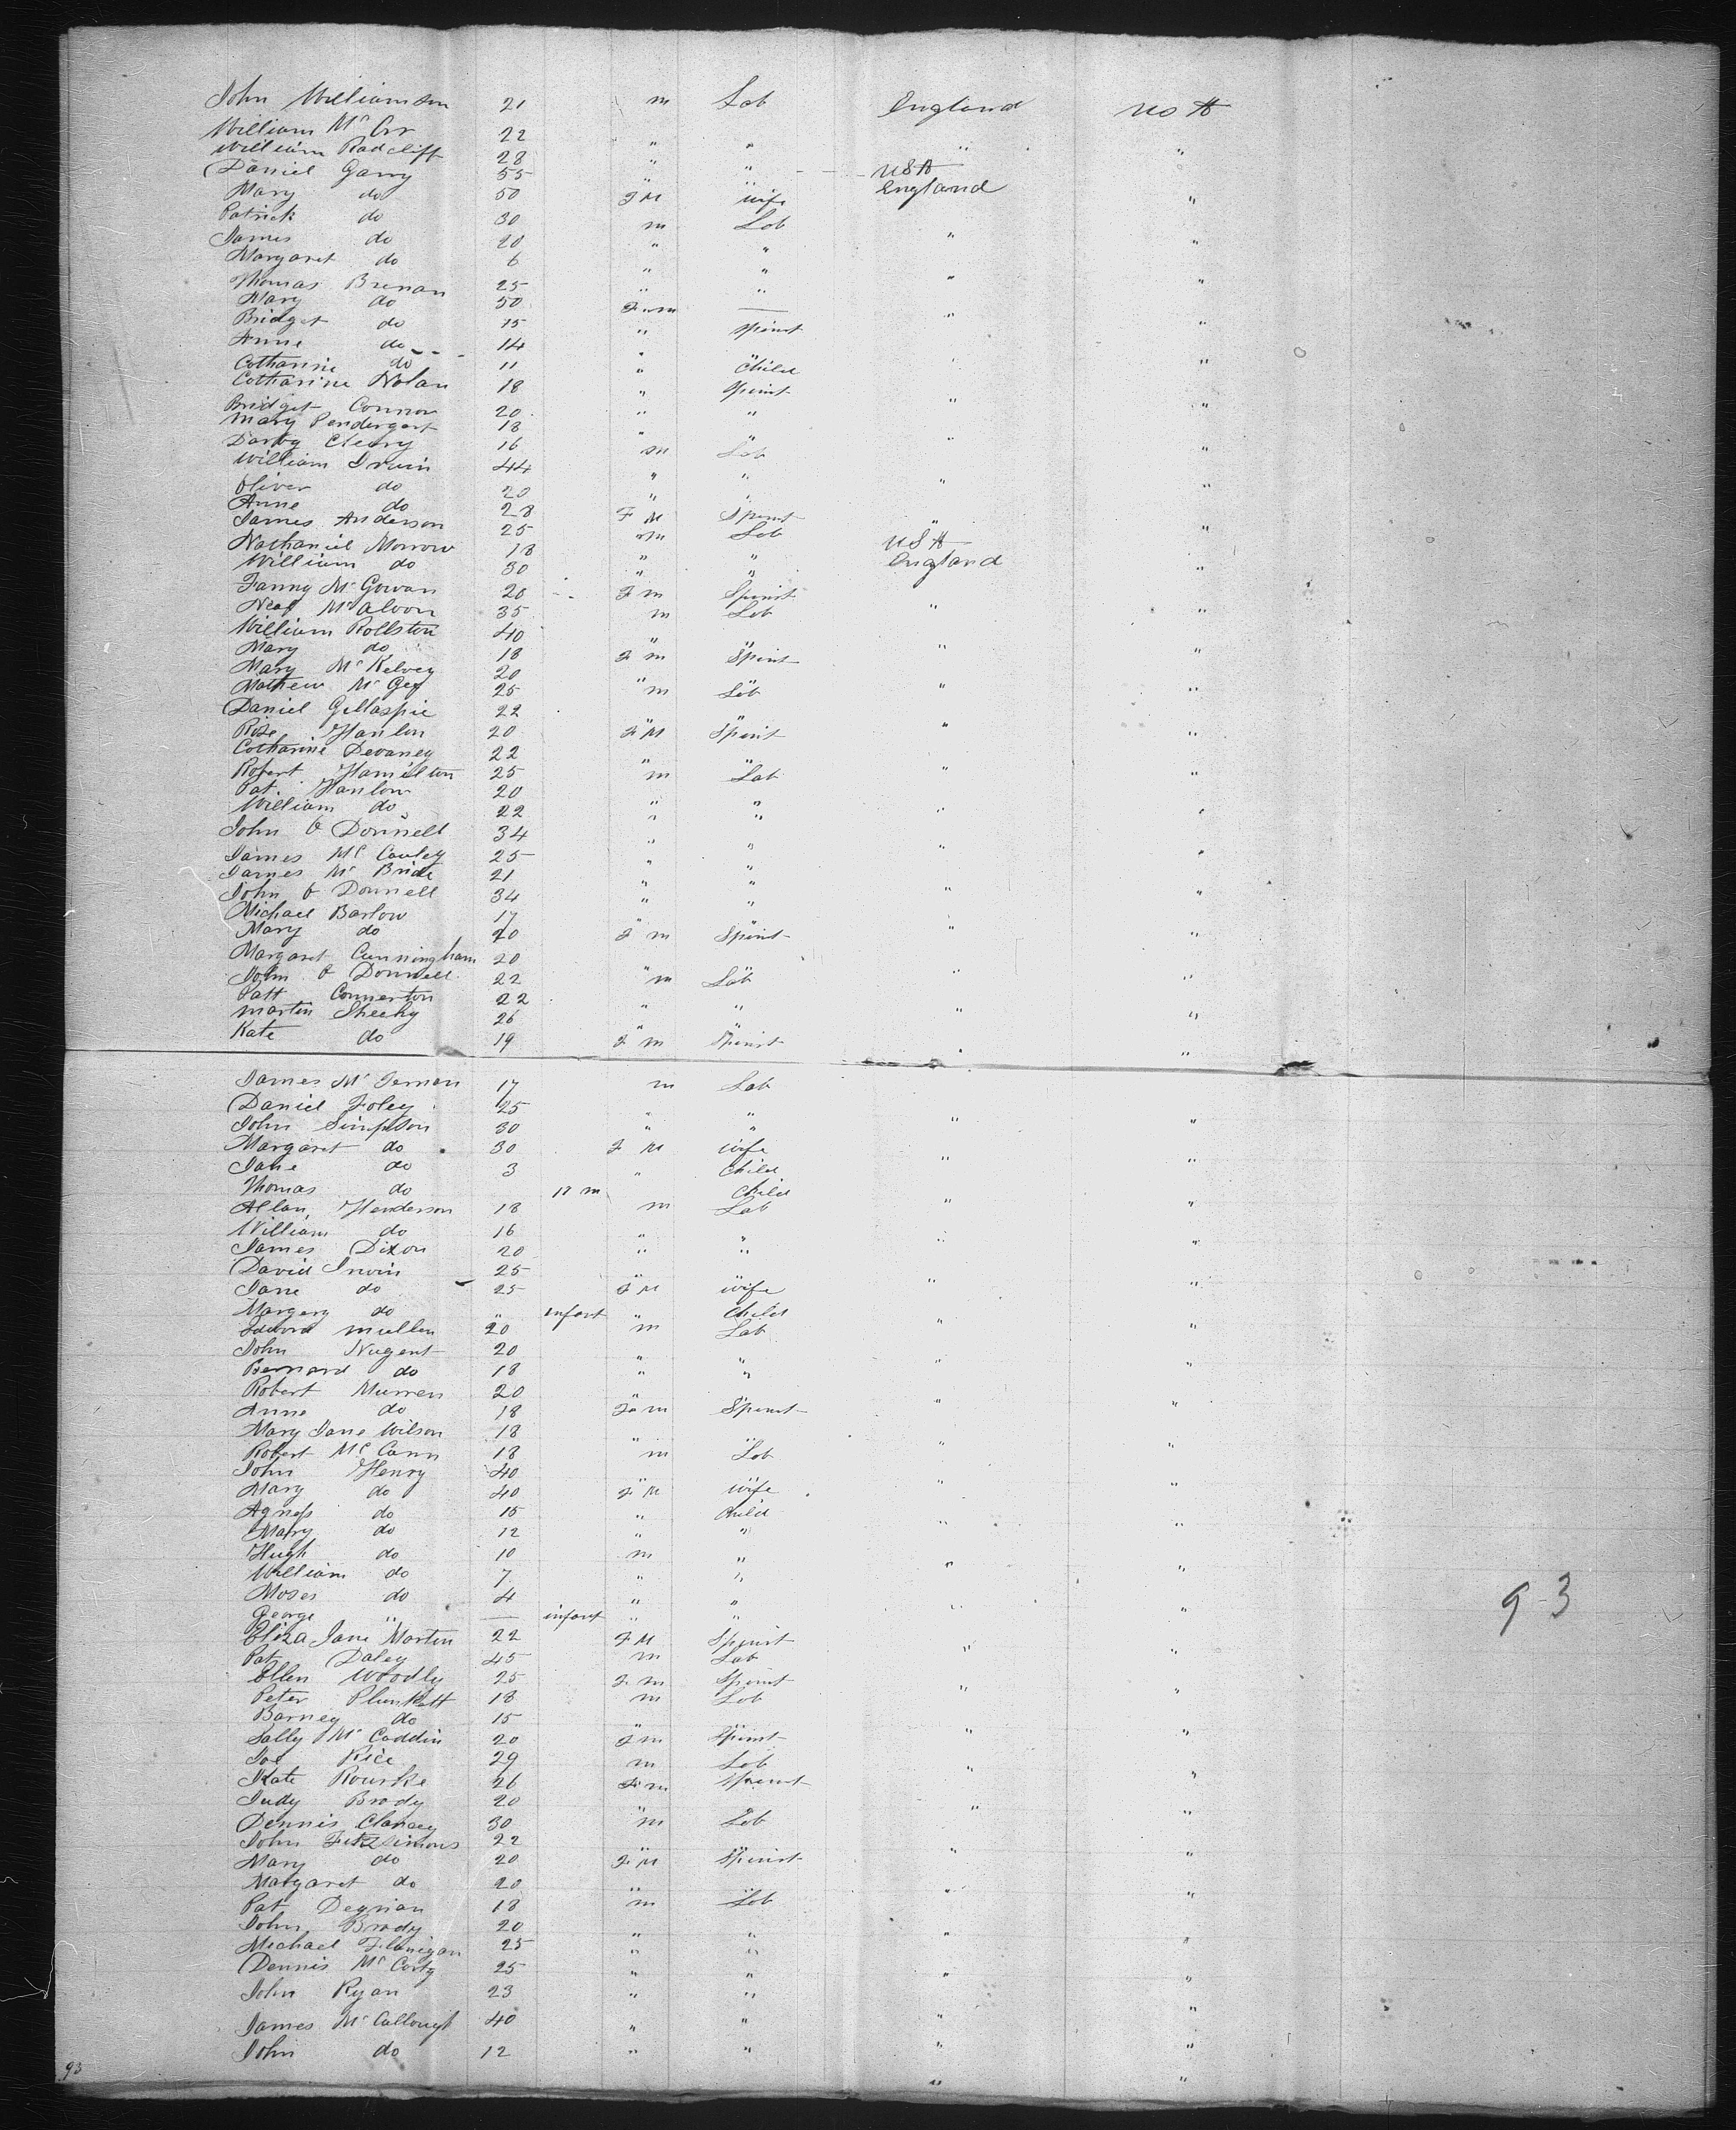 John Williamson 21 m Lab England USA
William Mc Orr 22 " " " "
William Radcliff 28 " "
Daniel Garry 55 " " USA
Mary do 50 FM wife England "
Patrick do 30 m Lab
James do 20 " " " "
Margaret do 6 " "
Thomas Brenan 25 " " " "
Mary do 50 F m —
Bridget do 15 " Spinst " "
Anne do 14 "
Catharine do 11 " Child "
Catharine Nolan 18 " Spinst
Bridget Connor 20 " " " "
Mary Pendergast 18 " "
Darby Cleary 16 m Lab " "
William Irwin 44 " "
Oliver do 20 " " " "
Anne do 28 F M Spinst
James Anderson 25 m Lab " "
Nathaniel Morrow 18 " " USA
William do 30 " " England "
Fanny Mc Gowan 20 F m Spinst
Neal Mc Aloon 35 m Lab " "
William Rollston 40 " "
Mary do 18 F m Spinst " "
Mary Mc Kelvey 20 " "
Mathew Mc Gee 25 m Lab " "
Daniel Gillaspie 22 " "
Rose Hanlon 20 F M Spinst " "
Catharine Devaney 22 " "
Robert Hamilton 25 m Lab " "
Pat. Hanlon 20 " "
William do 22 " " " "
John O Donnell 34 "
James Mc Cauley 25 " " " "
James Mc Bride 21 " "
John O Donnell 34 " " " "
Michael Barlow 17 " "
Mary do 20 F m Spinst " "
Margaret Cunningham 20 " "
John O Donnell 22 m Lab " "
Patt Connerton 22 " "
Martin Sheehy 26 " " " "
Kate do 19 F m Spinst " "
James Mc Ternan 17 m Lab
Daniel Foley 25 " " " "
John Simpson 30 " "
Margaret do 30 F M wife " "
Jane do 3 " Child
Thomas do m Child
Allan Henderson 18 m Lab " "
William do 16 " "
James Dixon 20 " " " "
David Irwin 25 " "
Jane do 25 F M wife " "
Margery do " infant " Child
Edward Mullen 20 m Lab " "
John Nugent 20 " "
Bernard do 18 " " " "
Robert Murren 20 " "
Anne do 18 F m Spinst " "
Mary Jane Wilson 18 " "
Robert Mc Cann 18 m Lab " "
John Henry 40 " "
Mary do 40 F M wife " "
Agness do 15 " Child
Mary do 12 " " " "
Hugh do 10 m "
William do 7 " " " "
Moses do 4 " "
George " — infant " " " "
Eliza Jane Martin 22 F M Spinst
Pat Daley 45 m Lab " "
Ellen Woodly 25 F m Spinst
Peter Plunkett 18 m Lab " "
Barney do 15 " "
Sally Mc Caddin 20 F m Spinst " "
Joe Rice 29 m Lab
Kate Rourke 26 F m Spinst " "
Judy Brady 20 " "
Dennis Clancey 30 m Lab " "
John Fitzsimons 22 " "
Mary do 20 F M Spinst " "
Margaret do 20 " "
Pat Degnan 18 m Lab " "
John Brady 20 " "
Michael Flanigan 25 " " " "
Dennis Mc Carty 25 " "
John Ryan 23 " " " "
James Mc Callough 40 " " " "
John do 12 " " " "
" "
93
93